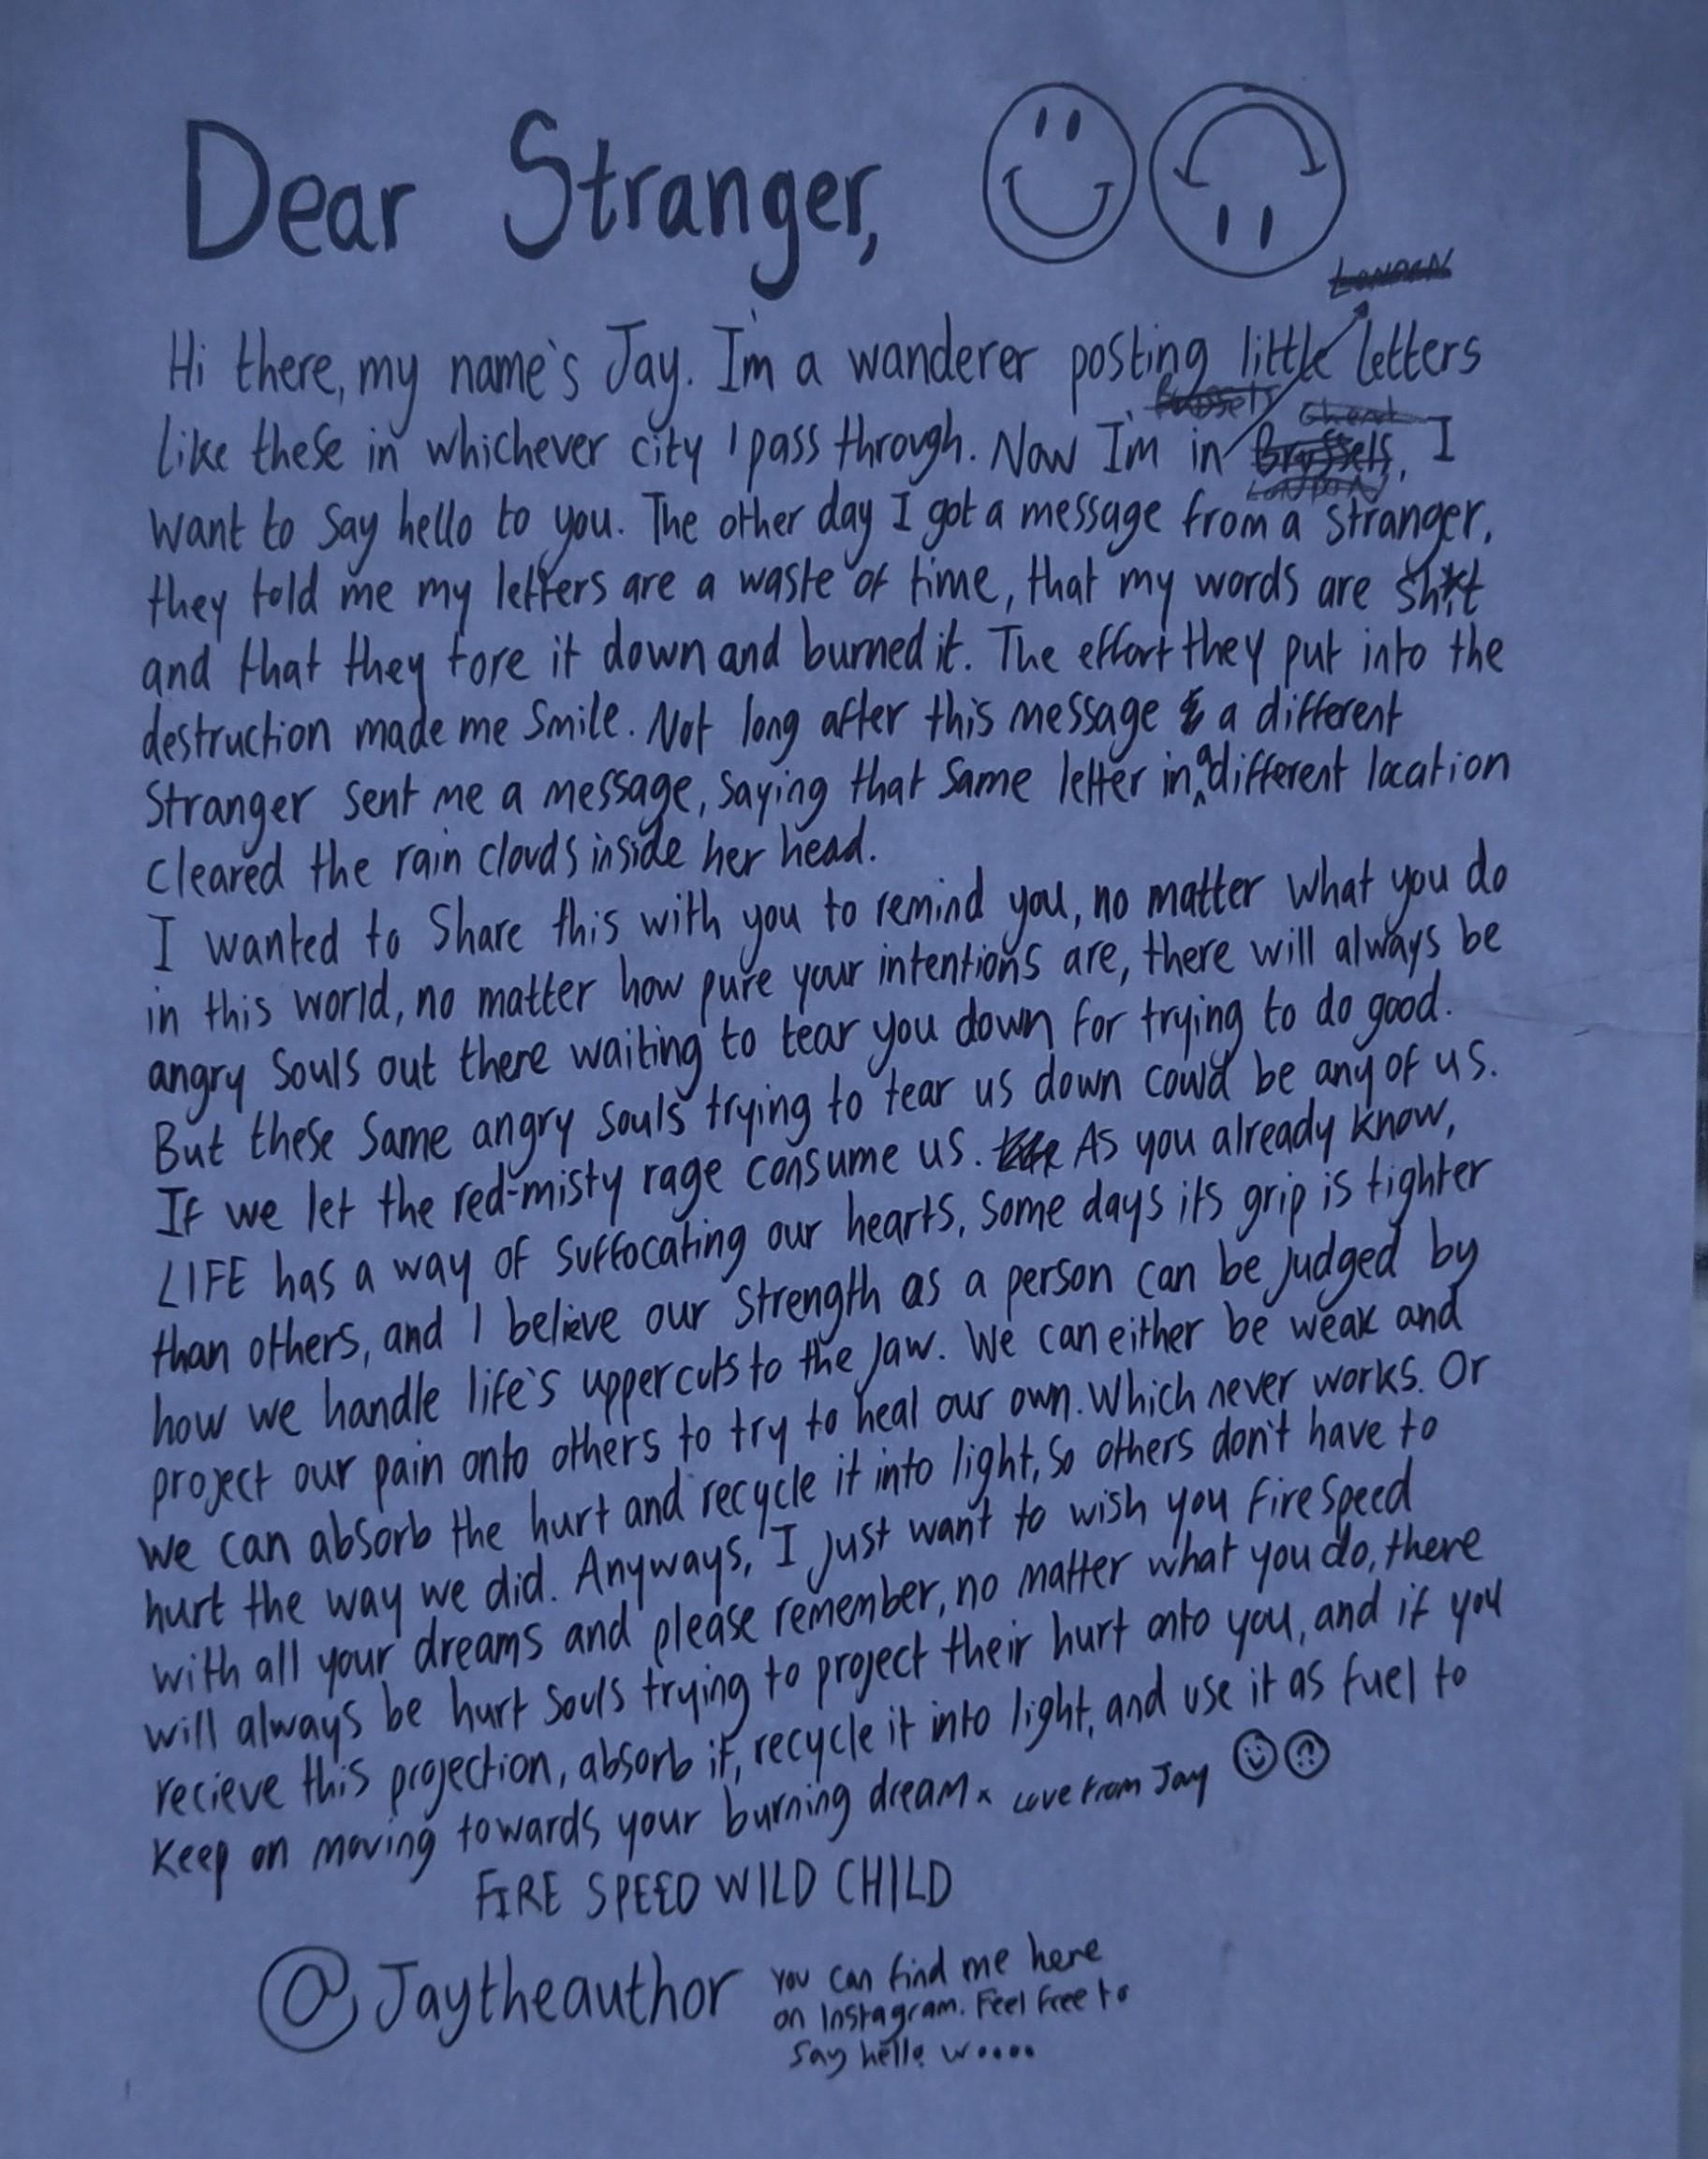 Dear Stranger,
London
Hi there, my name's Jay. I'm a wanderer posting little letters
Brussels Ghent
like these in whichever city I pass through. Now I'm in Brussels, I
London
want to say hello to you. The other day I got a message from a stranger,
they told me my letters are a waste of time, that my words are sh*t
and that they tore it down and burned it. The effort they put into the
destruction made me smile. Not long after this message a different
stranger sent me a message, saying that same letter in a different location
cleared the rain clouds inside her head.
I wanted to share this with you to remind you, no matter what you do
in this world, no matter how pure your intentions are, there will always be
angry souls out there waiting to tear you down for trying to do good.
But these same angry souls trying to tear us down could be any of us.
If we let the red-misty rage consume us. As you already know,
LIFE has a way of suffocating our hearts, some days its grip is tighter
than others, and I believe our strength as a person can be judged by
how we handle life's uppercuts to the jaw. We can either be weak and
project our pain onto others to try to heal our own. Which never works. Or
we can absorb the hurt and recycle it into light, so others don't have to
hurt the way we did. Anyways, I just want to wish you fire speed
with all your dreams and please remember, no matter what you do, there
will always be hurt souls trying to project their hurt onto you, and if you
recieve this projection, absorb it, recycle it into light, and use it as fuel to
keep on moving towards your burning dream x Love from Jay
FIRE SPEED WILD CHILD
@Jaytheauthor you can find me here
on Instagram. Feel free to
say hello w....